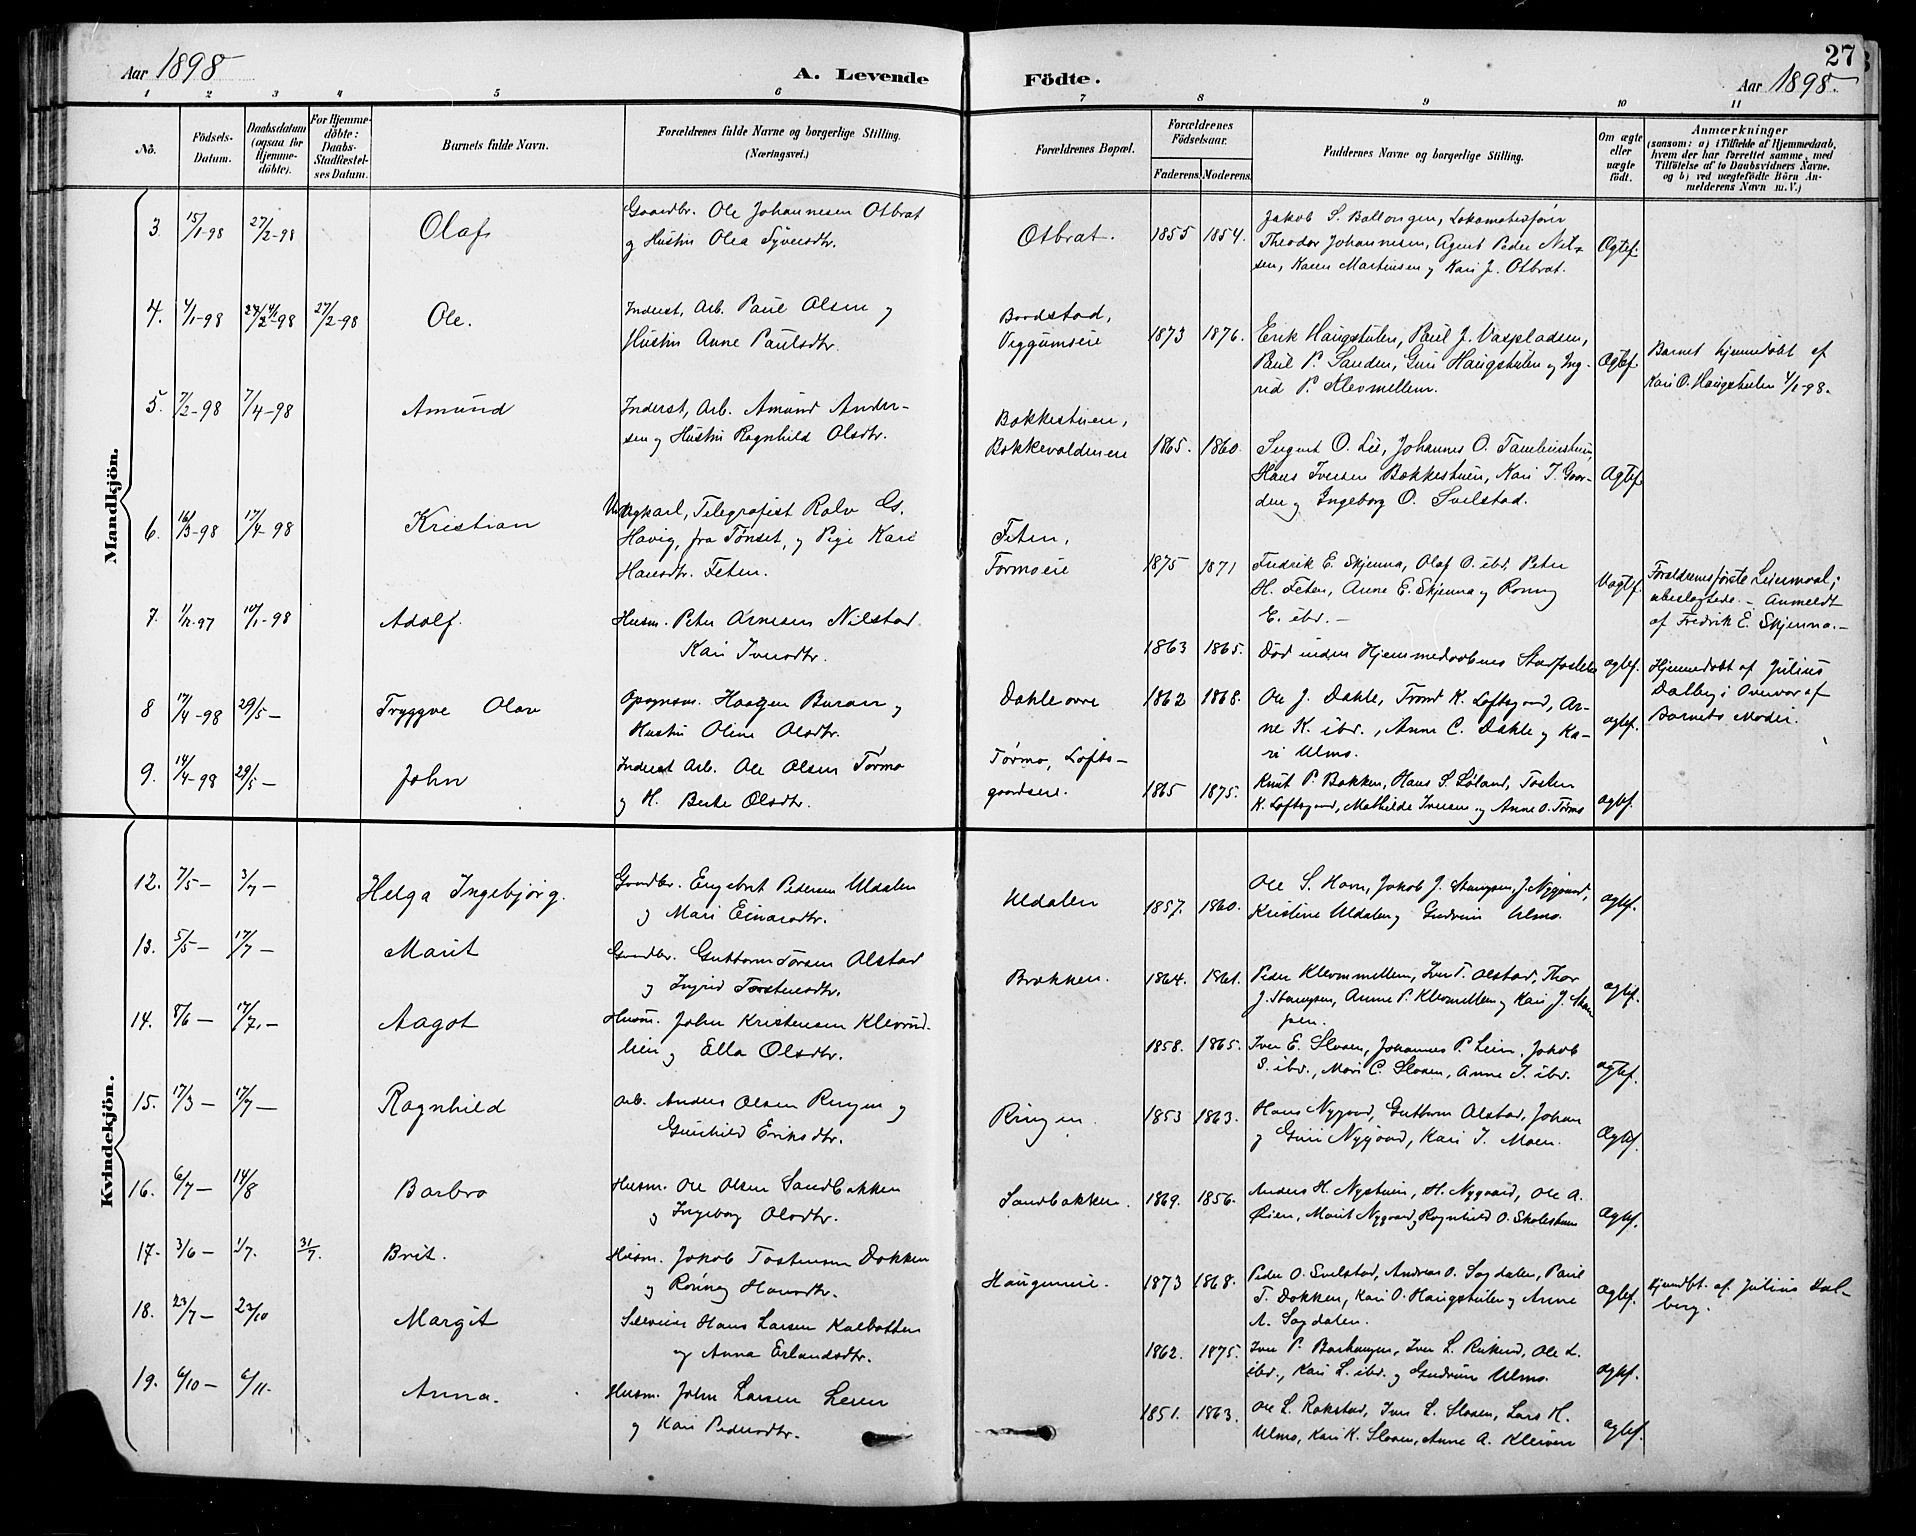 27
Aar 1898
A. Levende
Födte.
Aar 1898.
1 2 3 4 5 6 7 8 9 10 11
No.
Födsels-Datum.
Daabsdatum (ogsaa for Hjemmedöbte).
For Hjemmedöbte: Daabs-Stadfæstelses Datum.
Barnets fulde Navn.
Forældrenes fulde Navne og borgerlige Stilling.
(Næringsvei.)
Forældrenes Bopæl.
Forældrenes Födselsaar.
Faderens. Moderens.
Faddernes Navne og borgerlige Stilling.
Om ægte eller uægte födt.
Anmærkninger
(saasom: a) i Tilfælde af Hjemmedaab,
hvem der har forrettet samme, med
Tilföielse af to Daabsvidners Navne.
og b) ved uægtefödte Börn An-
melderens Navn m. V.)
Mandkjön.
3. 15/1-98 27/2-98 Olaf
Gaardbr. Ole Johannesen Otbrat
og Hustru Olea Syversdtr.
Otbrat. 1855 1854.
Jakob S. Ballongen, Lokomotivfører
Theodor Johannesen, Agent Peder Nil-
sen, Karen Martinsen og Kari J. Otbrat.
Ægtef.
4. 4/1-98 4/1-98 27/2-98 Ole.
Inderst, Arb. Paul Olsen og
Hustru Anne Paulsdtr.
Viggumseie 1873 1876.
Erik Haugstulen, Paul J. Vaspladsen,
Paul P. Sanden, Guri Haugstulen og Ing-
rid P. Klevmellem.
Ægtef.
Barnet hjemmedøbt af
Kari O. Haugstulen 4/1-98.
5. 7/2-98 7/4-98 Amund
Inderst, Arb. Amund Ander-
sen og Hustru Ragnhild Olsdtr.
Bakkestuen,
1865. 1860.
O. Lie, Johannes O.
Hans Iversen Bakkestuen, Kari J. Gaar-
den og Ingeborg O. Svelstad.
Ægtef.
6. 16/3-98 17/4-98 Kristian
Ungkarl, Telegrafist Ralv Gs.
Havig, fra Tønset, og Pige Kari
Hansdtr. Feten.
Feten,
Tormoeie 1875 1871
Fredrik E. Skjenna, Olaf O. ibd, Peter
H. Feten, Anne E. Skjenna og Ronny
E. ibd. -
Uægtef.
Forældrenes første Leiermaal;
ubeslægtede. - Anmeldt
af Fredrik E. Skjenna. -
7. 10/1-98 Adolf.
Husm. Peter Arnesen Nilstad
Kari Iversdtr.
1863 1865.
Død inden Hjemmedaabens Stadfæstelse
ægtef.
Hjemmedøbt af Julius
Dalberg i Overvær af
Barnets Moder.
8 17/4-98 29/5- Tryggve Olav
Opsynsm. Haagen Buraas og
Hustru Oline Olsdtr.
Dahle øvre 1862 1868.
Ole J. Dahle, Trond K. Loftsgaard, Ar-
ne K. ibd., Anne C. Dahle og Ka-
ri Ulmo.
ægtef.
9. 14/4-98 29/5- John
Inderst Arb. Ole Olsen Tormo
og H. Berte Olsdtr.
Tormo, Lofts-
gaardseie. 1865 1875.
Knut P. Bakken, Hans S. Loland, Tosten
K. Loftsgaard, Mathilde Iversen og Anne O. Tormo
ægtef.
Kvindekjön.
12. 7/5- 3/7- Helga Ingebjørg.
Gaardbr. Engebret Pedersen Uldalen
og Mari Einarsdtr.
Uldalen 1857. 1860.
Ole S. Havn, Jakob J. Stampen, J. Nygaard,
Kristine Uldalen og Gudrun Ulmo.
ægtef.
13. 5/5- 17/7- Marit
Gaardbr. Guttorm Torsen Alstad
og Ingrid Tostensdtr.
Brokken. 1864. 1861.
Peder Klevmellem, Iver T. Alstad, Thor
J. Stampen, Anne P. Klevmellem og Kari J. Stam
pen.
ægtef.
14. 8/6- 17/7.- Aagot
Husm. John Kristensen Klevrud-
lien og Ella Olsdtr.
1858. 1865.
Iver E. Sloaen, Johannes P. Lien, Jakob
S. ibd., Mari C. Sloaen, Anne J. ibd.
ægtef.
15. 17/3- 17/7- Ragnhild
Arb. Anders Olsen Ringen og
Gunhild Eriksdtr.
Ringen. 1853 1863.
Hans Nygaard, Guttorm Alstad, Johan
og Guri Nygaard, Kari J. Moen.
Ægtef.
16. 6/7- 14/8 Barbro
Husm. Ole Olsen Sandbakken
og Ingeborg Olsdtr.
Sandbakken. 1869. 1856.
Anders H. Nystuen, H. Nygaard, Ole A.
Øien, Marit Nygaard, Ragnhild O. Skolestuen
Ægtef.
17. 3/6- 1/7. 31/7. Brit.
Husm. Jakob Tostensen Dokken
og Rønnog Hansdtr.
Haugeneie. 1873 1868.
Peder O. Svelstad, Andreas O. Sagdalen, Paul
T. Dokken, Kari O. Haugstulen og Anne
A. Sagdalen.
ægtef.
Hjemdbt. af Julius Dal-
berg.
18. 23/7- 23/10 Margit
Hans Larsen Kalbotten
og Anna Erlandsdtr.
1862. 1875.
Iver P. Barhaugen, Iver L. Rukend, Ole L.
ibd., Kari L. ibd. og Gudrun Ulmo.
ægtef.
19. 6/10- 6/11. Anna.
Husm. John Larsen Leren
og Kari Pedersdtr.
1851. 1863.
Ole L. Rokstad, Iver L. Sloaen, Lars H.
Ulmo, Kari K. Sloaen, Anne A. Kleiven
ægtef.